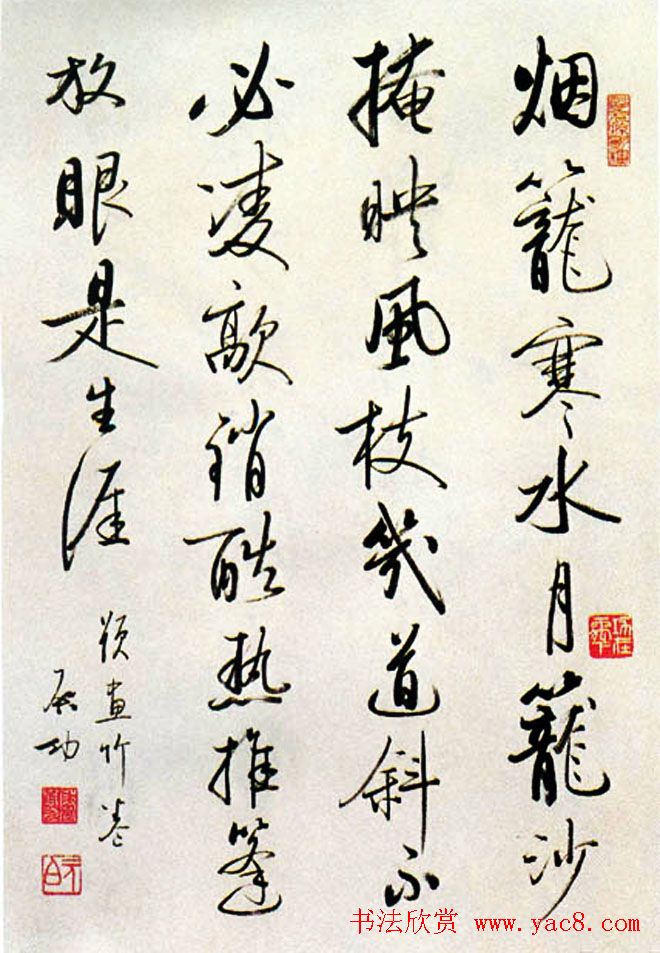 烟籠寒水月籠沙
掩映風枝幾道斜不
必凌歊銷酷热推篷
放眼是生涯
題畫竹卷
启功
书法欣赏 www.yac8.com